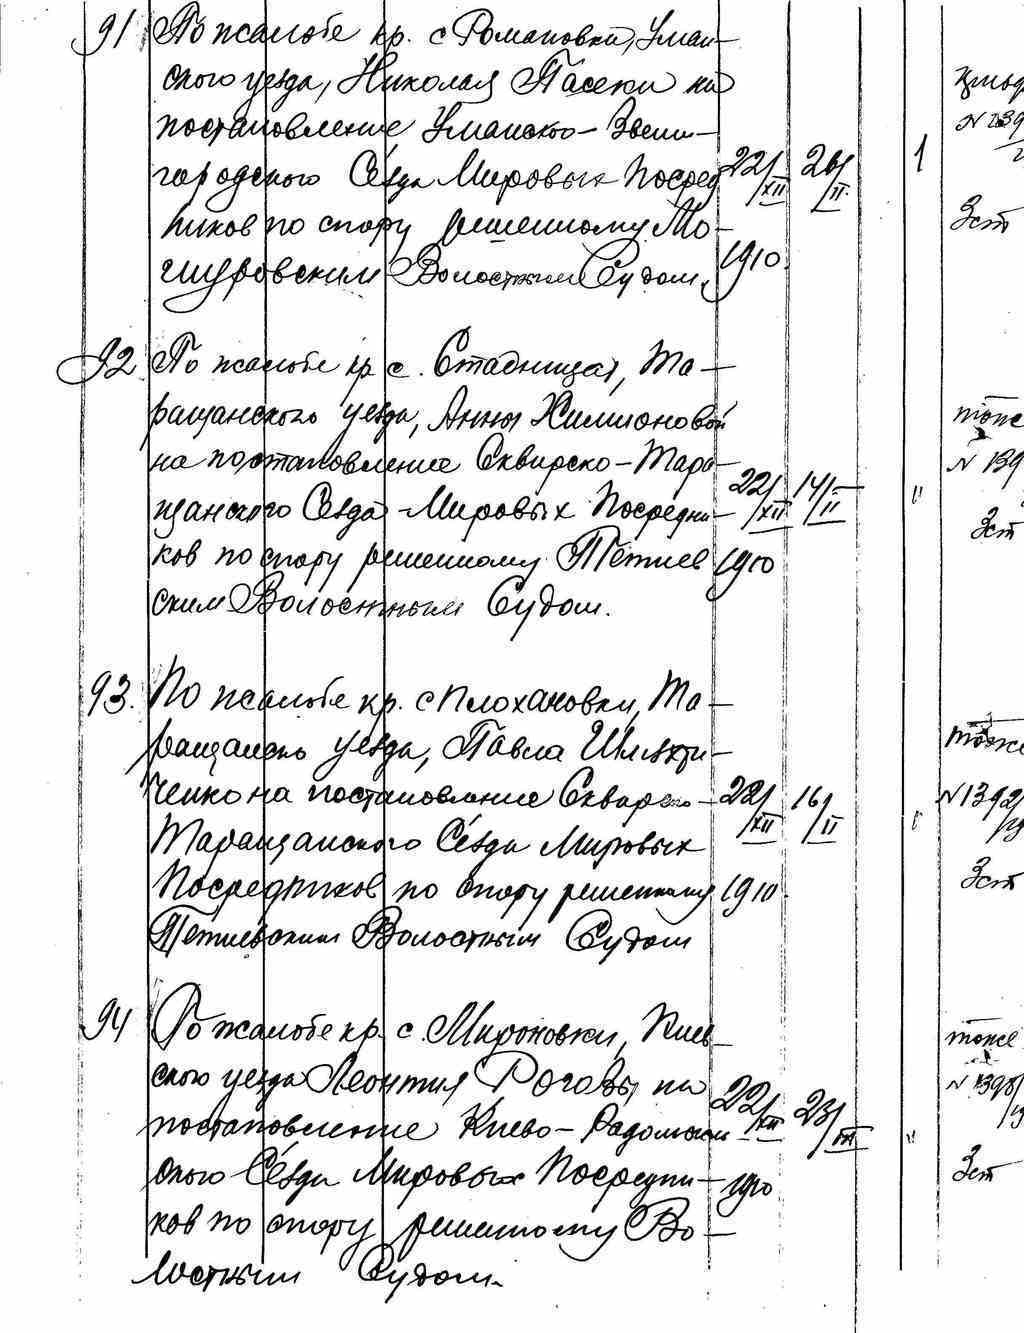 91 По жалобе кр. с Романовки, Уман-
ского уезда, Николая Пасеки на
постановление Уманско-Звени-
городского Сезда Мировых Посред 22/XII 26/II. 1
ников по спору решенному Мо-
гуровским Волостным Судом. 1910
Зст
92 По жалобе кр. с. Стадницы, Та-
ращанского уезда, Анны
на постановление Сквирско-Тара-
щанского Сезда Мировых Посредни- 22/XII 14/II "
ков по спору решенному Тетиев 1910
ским Волостным Судом.
тоже
N 139
Зст
93. По жалобе кр. с Плохановки, Та-
ращанско уезда, Павла
ченко на постановление Сквирско- 22/XII 16/II "
Таращанского Сезда Мировых
Посредников по спору решенному 1910
Тетиевским Волостным Судом
тоже
N 1392/
Зст
94 По жалобе кр. с. Мироновки, Киев-
ского уезда Леонтия Роговы на
постановление Киево-Радомысль 22/XII 23/III "
ского Сезда Мировых Посредни- 1910
ков по спору решенному Во-
лостным Судом.
тоже
Зст